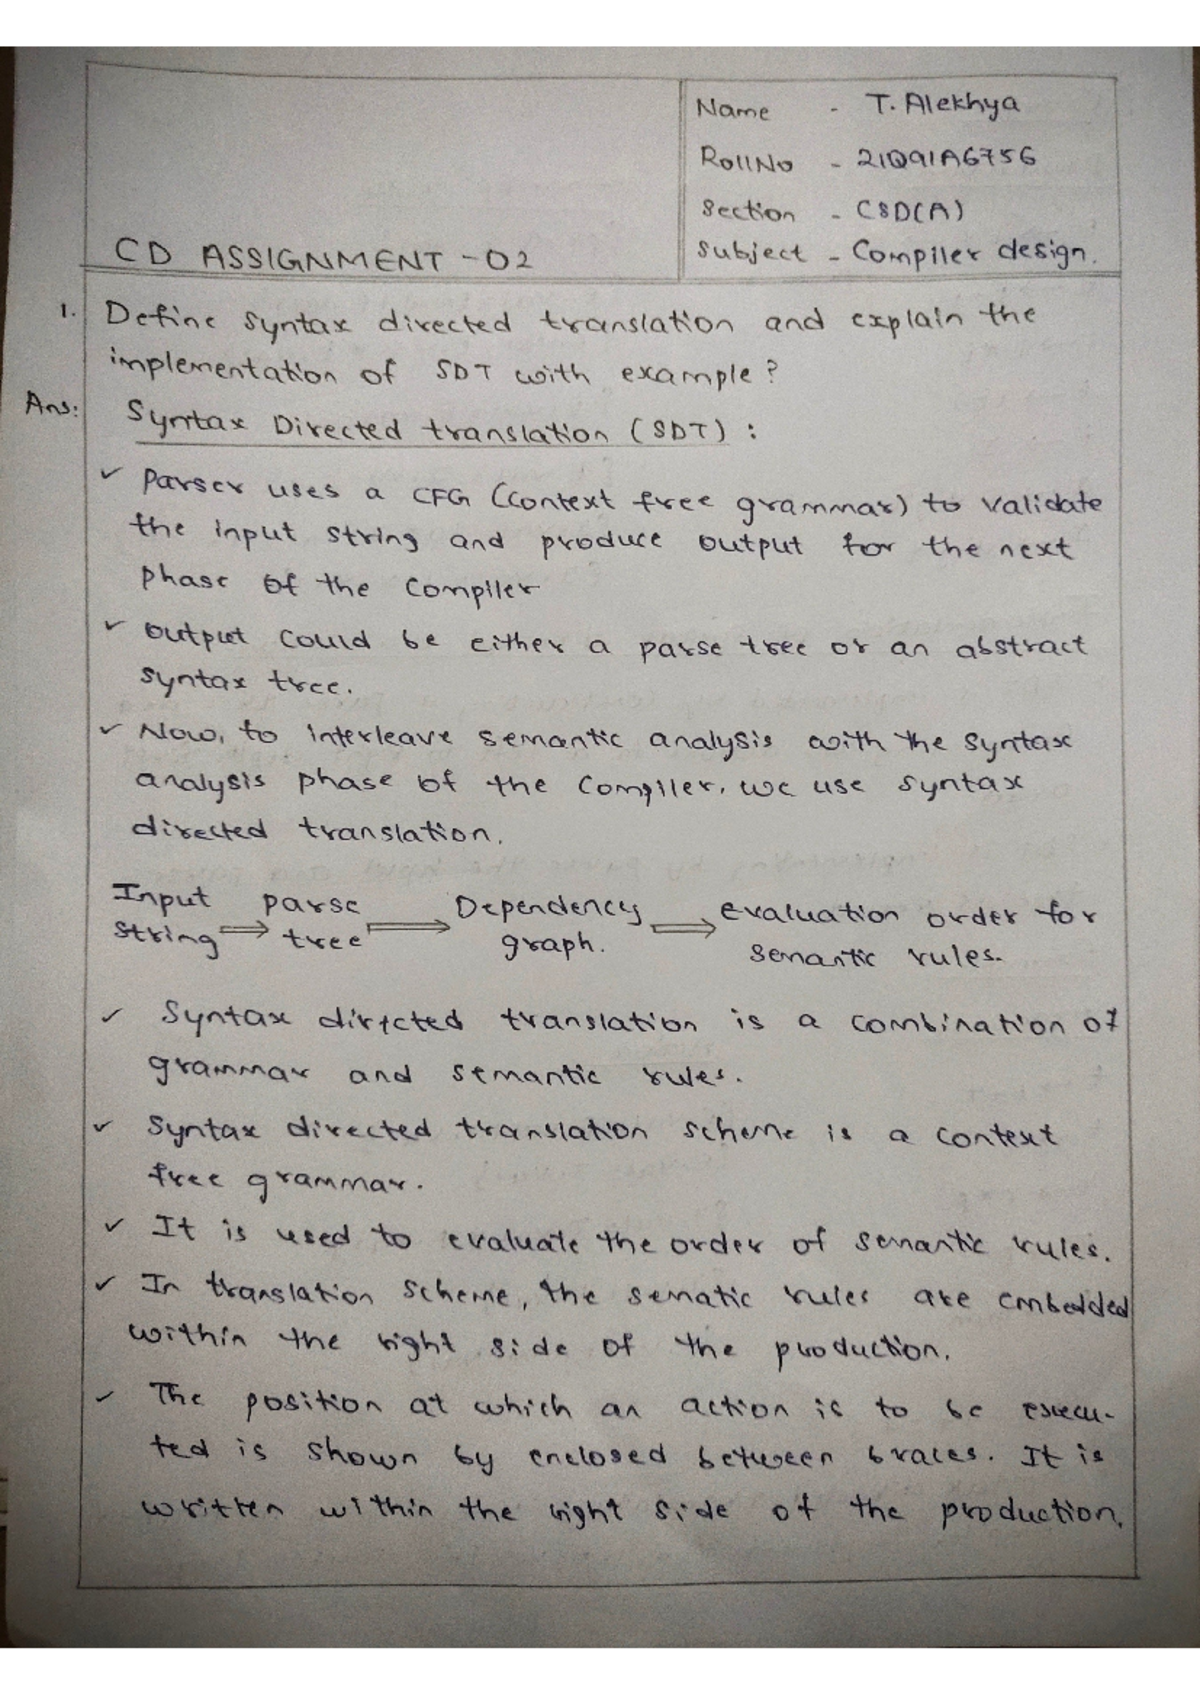 Name - T. Alekhya
RollNo - 21Q91A6756
Section - CSD(A)
Subject - Compiler design.
CD ASSIGNMENT - 02
1. Define Syntax directed translation and explain the
implementation of SDT with example?
Ans: Syntax Directed translation (SDT) :
✓ Parser uses a CFG (Context free grammar) to validate
the input string and produce output for the next
phase of the Compiler
✓ output could be either a parse tree or an abstract
syntax tree.
✓ Now, to interleave semantic analysis with the syntax
analysis phase of the Compiler, we use syntax
directed translation.
Input string ⇒ parse tree ⇒ Dependency graph. ⇒ evaluation order for semantic rules.
✓ Syntax directed translation is a combination of
grammar and semantic rules.
✓ Syntax directed translation scheme is a context
free grammar.
✓ It is used to evaluate the order of semantic rules.
✓ In translation scheme, the sematic rules are embedded
within the right side of the production.
✓ The position at which an action is to be execu-
ted is shown by enclosed between braces. It is
written within the right side of the production.